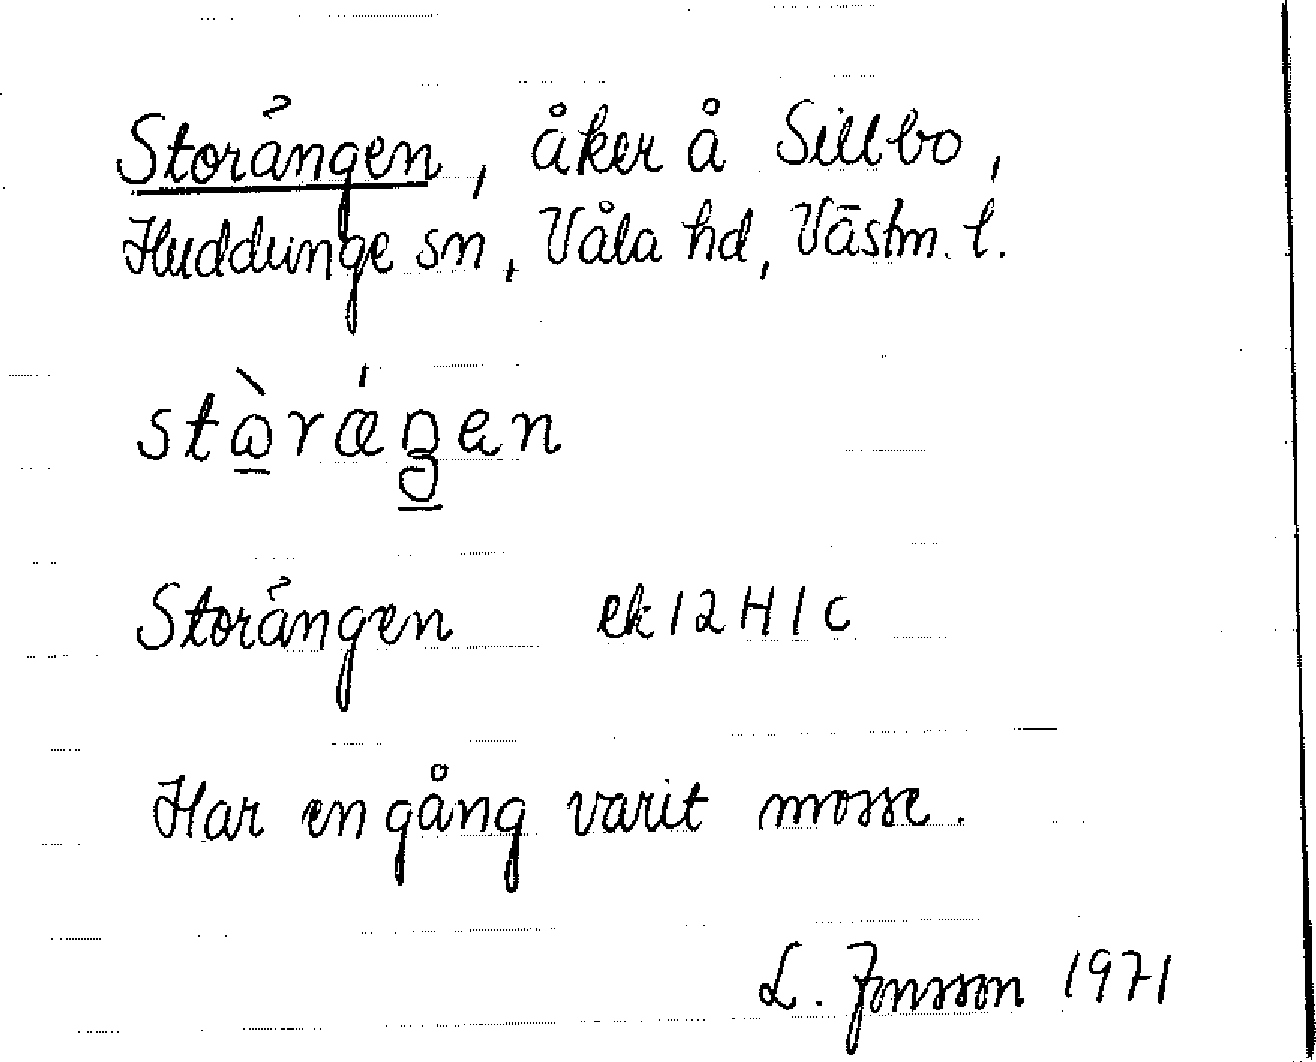 Storängen, åker å Sillbo,
Huddunge sn, Våla hd, Västm. l.
stòrǽgen
Storängen ek 12 H 1 c
Har en gång varit mosse.
L. Jonsson 1971